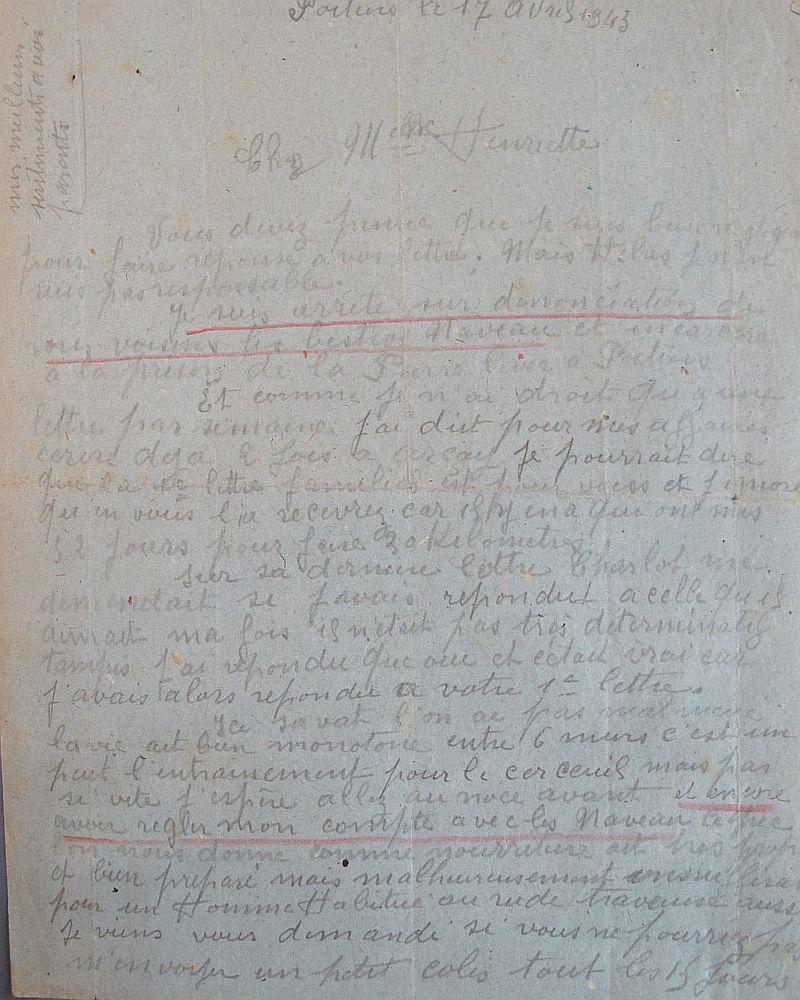 Poitiers le 17 Avril 1943
mes meilleurs
sentiments a vos
parents
Chez Melle Henriette
Vous devez penser que je suis bien
pour faire reponse a vos lettre. Mais Helas je n'en
suis pas responsable.
Je suis arrete sur denonciation de
mes voisins les Naveau et
a la prison de la Pierre levée a Poitiers
Et comme je n'ai droit qu'a une
lettre par semaine j'ai dut pour mes affaires
ecrire dja 2 fois a arçay je pourrait dire
que la lettre familles est pour vous et j'ignore
vous la recevrez car il y en a qui ont mis
12 jours pour faire kilometres.
Sur sa derniere lettre Charlot me
demendait si j'avais repondut a celle qu'il
ma fois il n'etait pas tres determinatif
tampis j'ai repondu que oui et cétait vrai car
j'avais alors repondu a votre 1e lettre.
Ici sa vat l'on ai pas mal
la vie ait bien monotone entre 6 murs c'est un
peut l'entrainement pour le cerceuil mais pas
si vite j'espère allez au noce avant et encore
avoir regler mon compte avec les Naveau
nous donne comme nourriture ait tres
et bien preparé mais malheureusement
pour un Homme Habitué au rude travaux aussi
Je viens vous demandé si vous ne pourrez pas
m'envoyer un petit colis tout les 15 jours